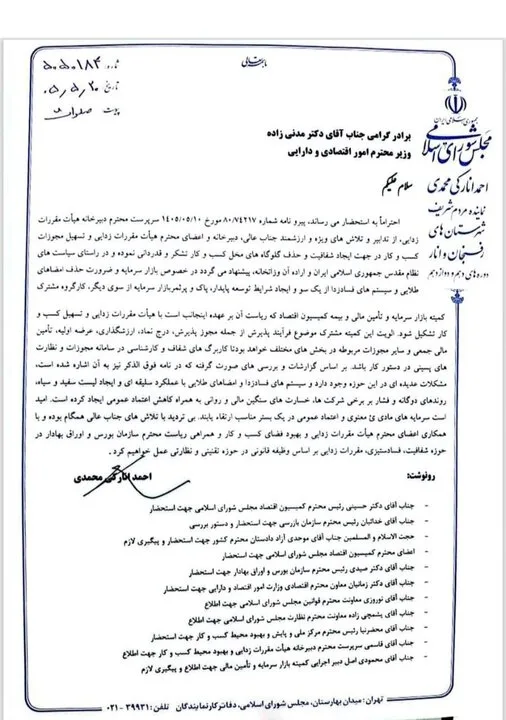 باسمه تعالی
شماره ۵۰۵۰۱۸۴
تاریخ ۰۵/۵/۲۰
پیوست
جمهوری اسلامی ایران
مجلس شورای اسلامی
احمد انارکی محمدی
نماینده مردم شریف
شهرستان های
رفسنجان و انار
دوره های دهم و دوازدهم
برادر گرامی جناب آقای دکتر مدنی زاده
وزیر محترم امور اقتصادی و دارایی
سلام علیکم
احتراماً به استحضار می رساند، پیرو نامه شماره ۸۰/۷۴۲۱۷ مورخ ۱۴۰۵/۰۵/۱۰ سرپرست محترم دبیرخانه هیأت مقررات
زدایی، از تدابیر و تلاش های ویژه و ارزشمند جناب عالی، دبیرخانه و اعضای محترم هیأت مقررات زدایی و تسهیل مجوزات
کسب و کار در جهت ایجاد شفافیت و حذف گلوگاه های مخل کسب و کار تشکر و قدردانی نموده و در راستای سیاست های
نظام مقدس جمهوری اسلامی ایران و اراده آن وزاتخانه، پیشنهاد می گردد در خصوص بازار سرمایه و ضرورت حذف امضاهای
طلایی و سیستم های فسادزدا از یک سو و ایجاد شرایط توسعه پایدار، پاک و پرثمربازار سرمایه از سوی دیگر، کارگروه مشترک
کمیته بازار سرمایه و تأمین مالی و بیمه کمیسیون اقتصاد که ریاست آن بر عهده اینجانب است با هیأت مقررات زدایی و تسهیل کسب و
کار تشکیل شود. الویت این کمیته مشترک موضوع فرآیند پذیرش از جمله مجوز پذیرش، درج نماد، ارزشگذاری، عرضه اولیه، تأمین
مالی جمعی و سایر مجوزات مربوطه در بخش های مختلف خواهد بودتا کاربرگ های شفاف و کارشناسی در سامانه مجوزات و نظارت
های پسینی در دستور کار باشد. بر اساس گزارشات و بررسی های صورت گرفته که در نامه فوق الذکر نیز به آن اشاره شده است،
مشکلات عدیده ای در این حوزه وجود دارد و سیستم های فسادزدا و امضاهای طلایی با عملکرد سلیقه ای و ایجاد لیست سفید و سیاه،
روندهای دوگانه و فشار بر برخی شرکت ها، خسارت های سنگین مالی و روانی به همراه کاهش اعتماد عمومی ایجاد کرده است. امید
است سرمایه های مادی و معنوی و اعتماد عمومی در یک بستر مناسب ارتقاء یابند. بی تردید با تلاش های جناب عالی همگام بوده و با
همکاری اعضای محترم هیأت مقررات زدایی و بهبود فضای کسب و کار و همراهی ریاست محترم سازمان بورس و اوراق بهادار در
حوزه شفافیت، فسادستیزی، مقررات زدایی بر اساس وظیفه قانونی در حوزه تقنینی و نظارتی عمل خواهیم کرد.
احمد انارکی محمدی
رونوشت:
- جناب آقای دکتر حسینی رئیس محترم کمیسیون اقتصاد مجلس شورای اسلامی جهت استحضار
- جناب آقای خدائیان رئیس محترم سازمان بازرسی جهت استحضار و دستور بررسی
- حجت الاسلام و المسلمین جناب آقای موحدی آزاد دادستان محترم کشور جهت استحضار و پیگیری لازم
- اعضای محترم کمیسیون اقتصاد مجلس شورای اسلامی جهت استحضار
- جناب آقای دکتر صیدی رئیس محترم سازمان بورس و اوراق بهادار جهت استحضار
- جناب آقای دکتر زمانیان معاون محترم اقتصادی وزارت امور اقتصاد و دارایی جهت استحضار
- جناب آقای نوروزی معاونت محترم قوانین مجلس شورای اسلامی جهت اطلاع
- جناب آقای پشمچی زاده معاونت محترم نظارت مجلس شورای اسلامی جهت اطلاع
- جناب آقای محضرنیا رئیس محترم مرکز ملی و پایش و بهبود محیط کسب و کار جهت استحضار
- جناب آقای قاسمی سرپرست محترم دبیرخانه هیأت مقررات زدایی و بهبود محیط کسب و کار جهت اطلاع
- جناب آقای محمودی اصل دبیر اجرایی کمیته بازار سرمایه و تأمین مالی جهت اطلاع و پیگیری لازم
تهران: میدان بهارستان، مجلس شورای اسلامی، دفاتر کار نمایندگان تلفن: ۳۹۹۳۱-۰۲۱